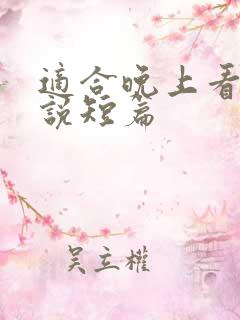 適合晚上看
說短篇
吴立權